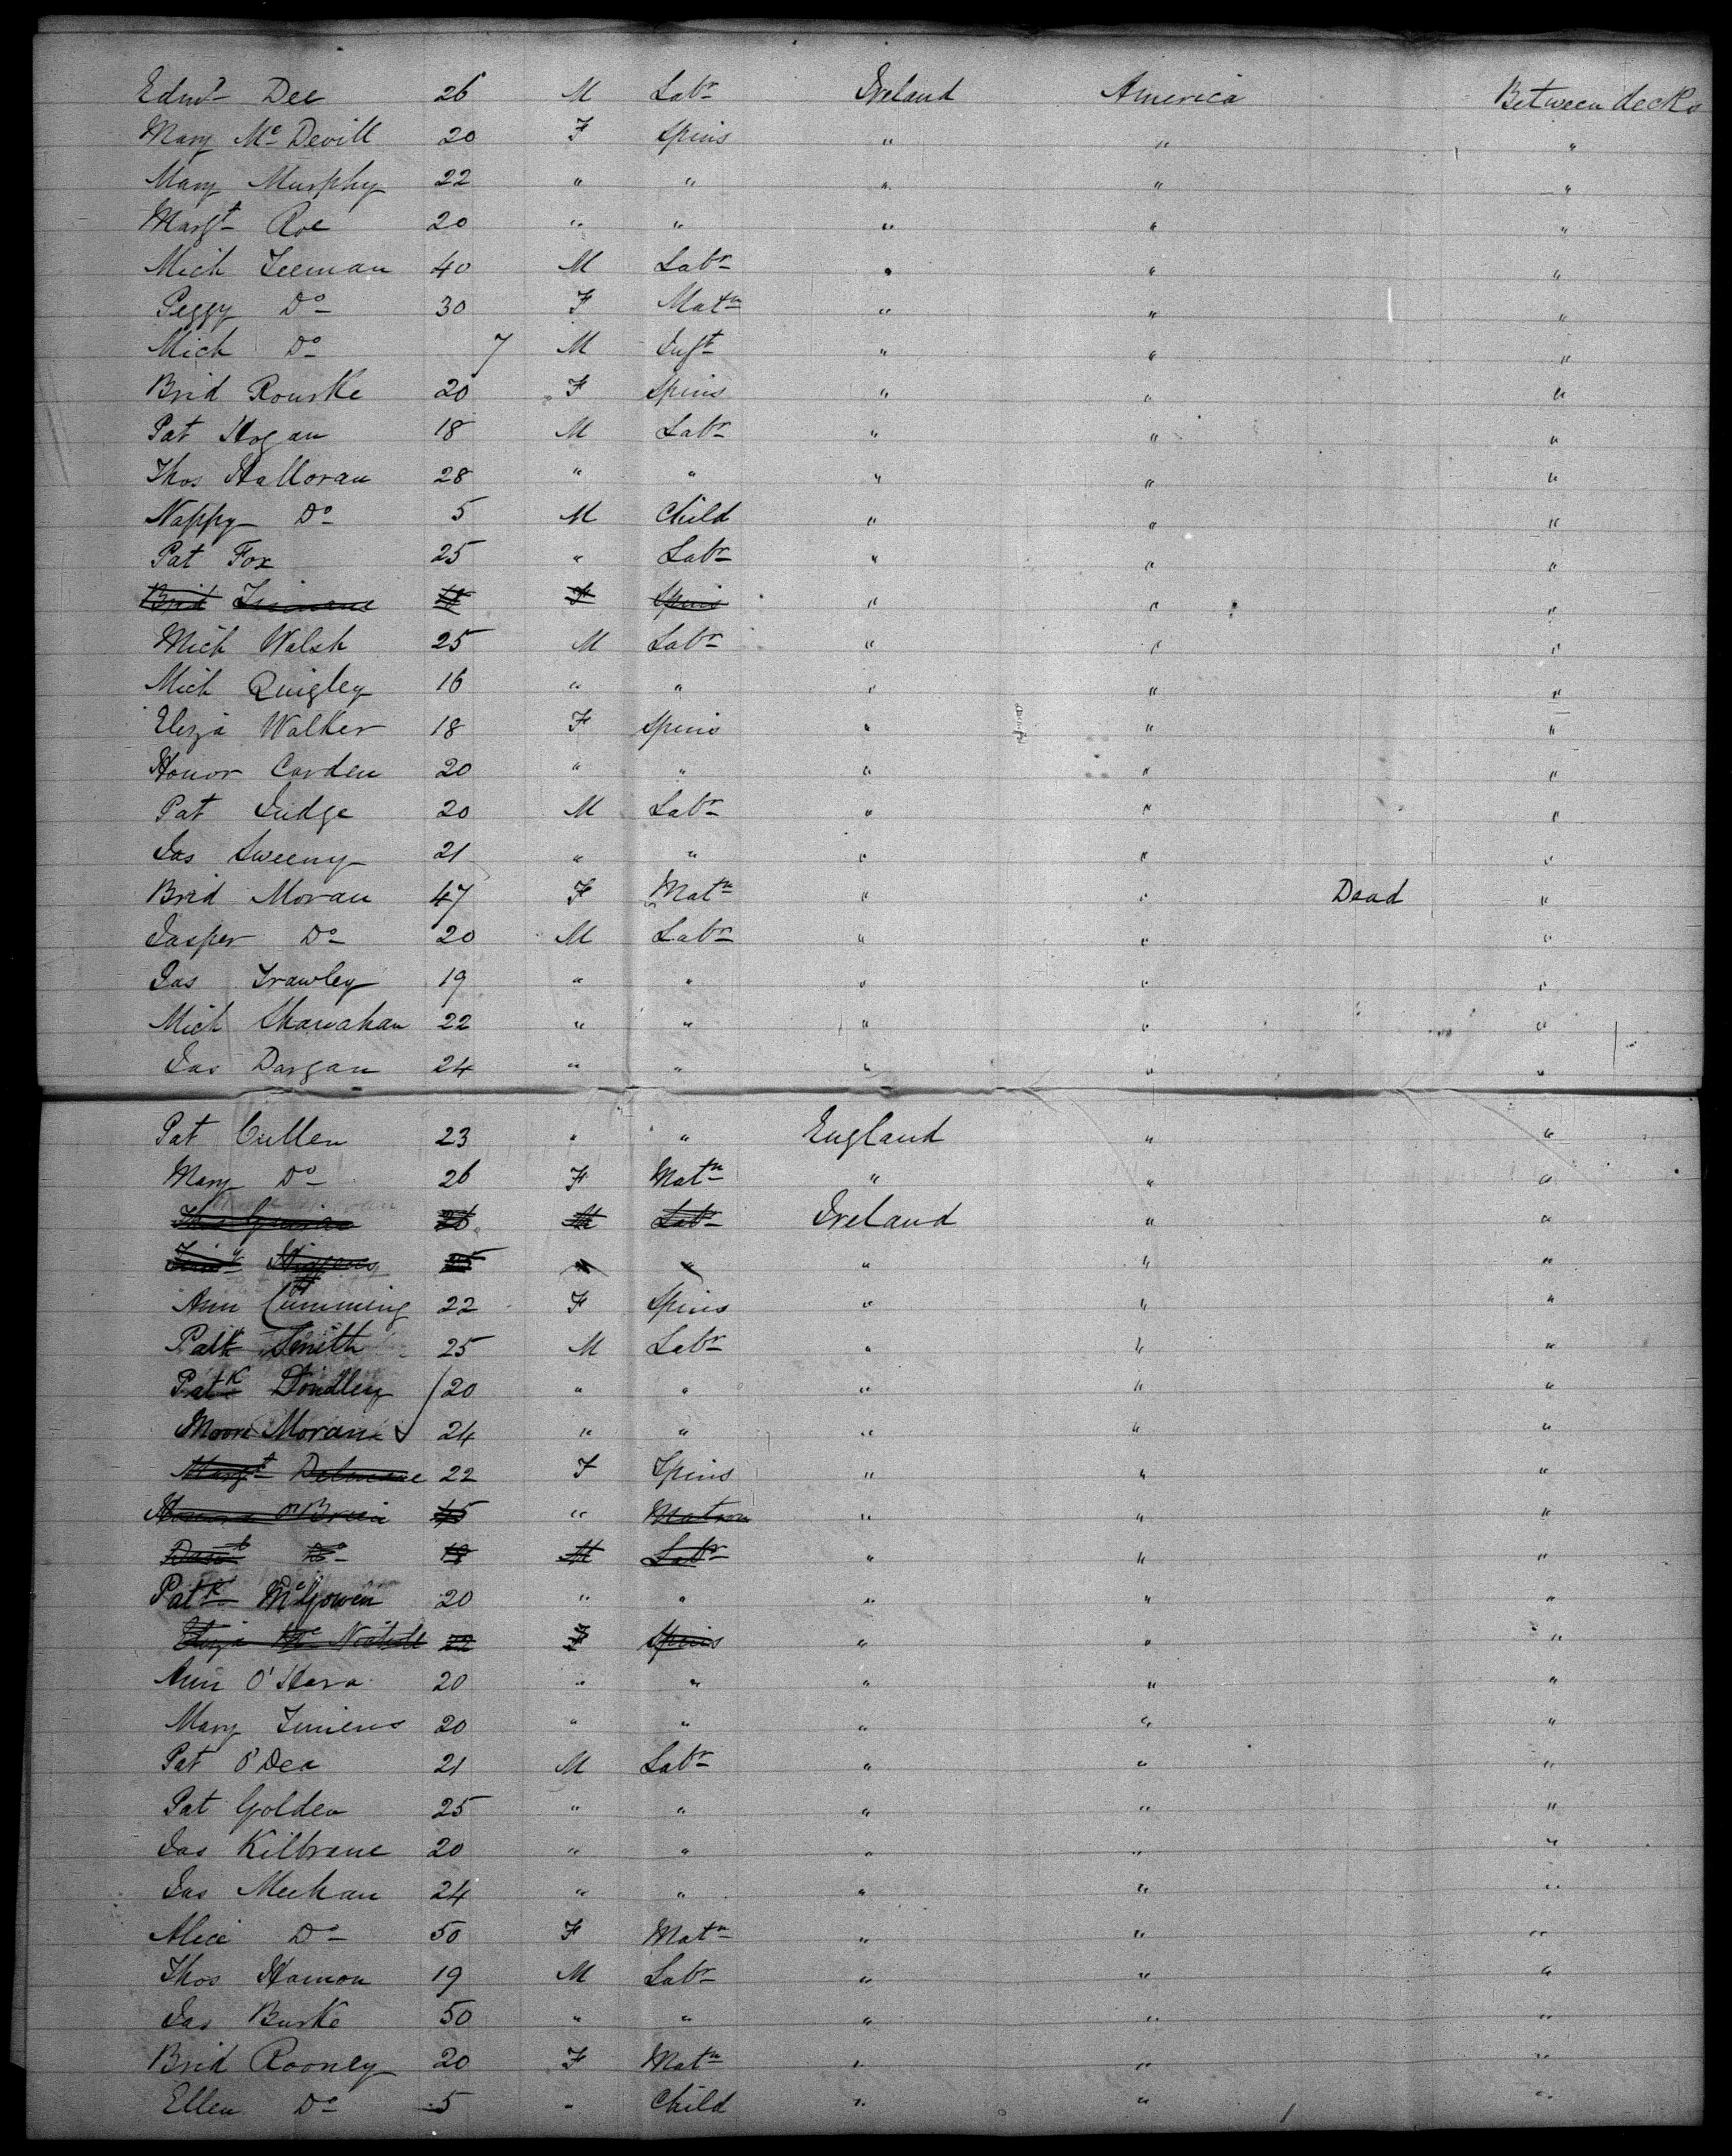 Edmd Dee 26 M Labr Ireland America Between decks
Mary Mc Devitt 20 F Spins " " "
Mary Murphy 22 " " " " "
Margt Roe 20 " " " " "
Mich Leeman 40 M Labr " " "
Peggy Do 30 F Matn " " "
Mich Do 7 M Inft " " "
Brid Rourke 20 F Spins " " "
Pat Hogan 18 M Labr " " "
Thos Halloran 28 " " " " "
Nappy Do 5 M Child " " "
Pat Fox 25 " Labr " " "
Brid F Spins " " "
Mich Walsh 25 M Labr " " "
Mich Quigley 16 " " " " "
Eliza Walker 18 F Spins " " "
Honor Carden 20 " " " " "
Pat Judge 20 M Labr " " "
Jas Sweeny 21 " " " " "
Brid Moran 47 F Matn " " Dead "
Jasper Do 20 M Labr " " "
Jas Frawley 19 " " " " "
Mich Shanahan 22 " " " " "
Jas Dargan 24 " " " " "
Pat Cullen 23 " " England " "
Mary Do 26 F Matn " " "
Thos 26 M Labr Ireland " "
25 " " " " "
Ann Cumming 22 F Spins " " "
Patk Smith 25 M Labr " " "
Patk 20 " " " " "
Moore Moran 24 " " " " "
Margt 22 F Spins " " "
O'Brien 45 " Matron " " "
Do M Labr " " "
Patk McGowen 20 " " " " "
Eliza Mc 22 F Spins " " "
Ann O'Hara 20 " " " " "
Mary 20 " " " " "
Pat O'Dea 21 M Labr " " "
Pat Golden 25 " " " " "
Jas Kilbrane 20 " " " " "
Jas Meehan 24 " " " " "
Alice Do 50 F Matn " " "
Thos Hamon 19 M Labr " " "
Jas Burke 50 " " " " "
Brid Rooney 20 F Matn " " "
Ellen Do 5 " Child " " "